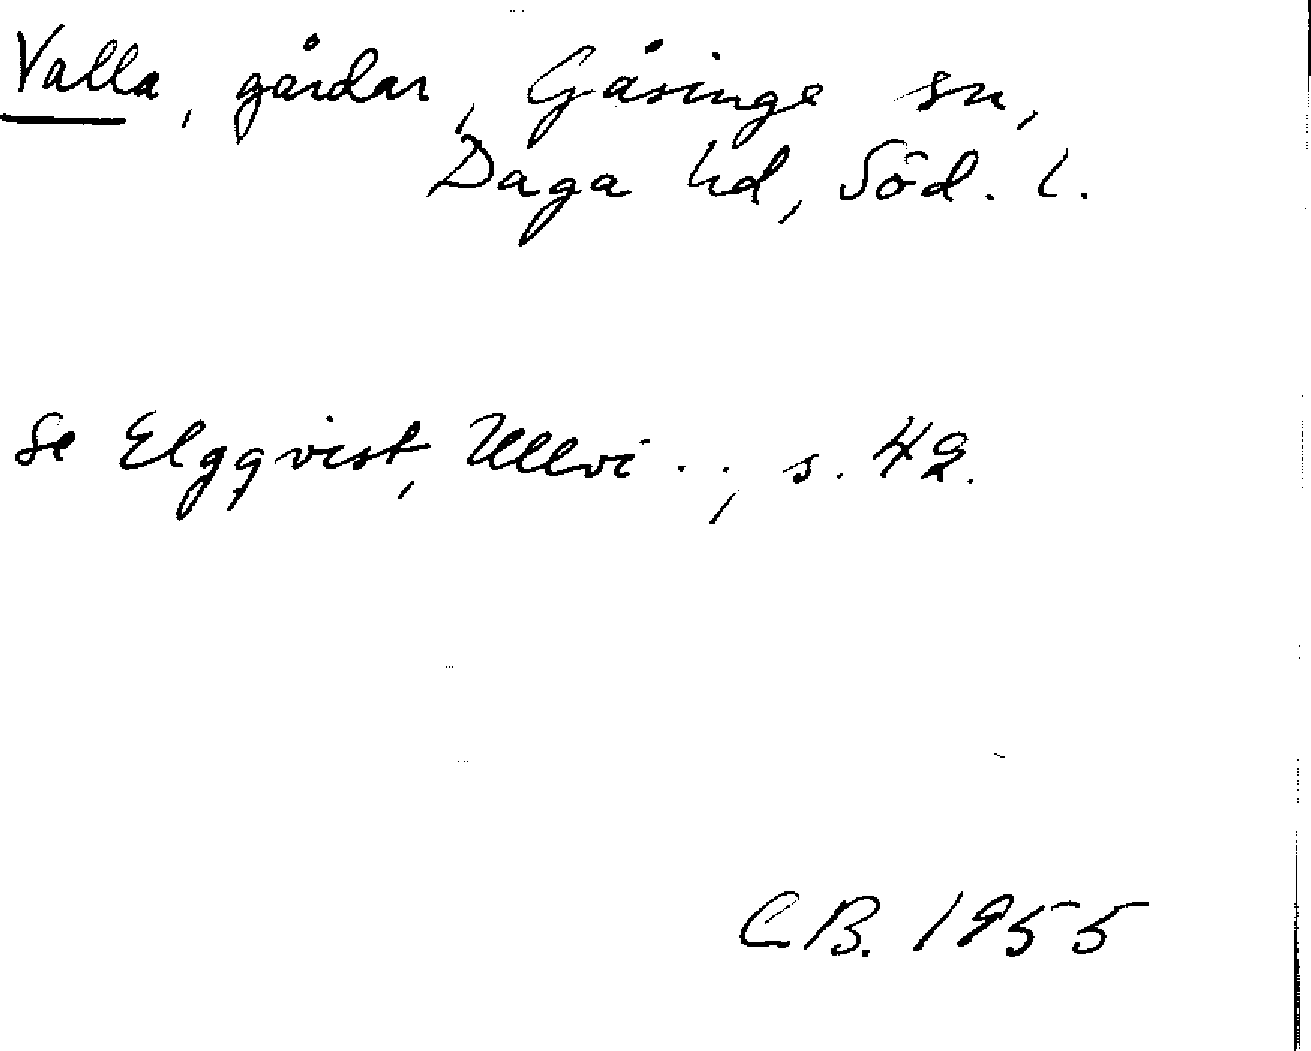 Valla, gårdar, Gåsinge sn,
Daga hd, Söd. l.
Se Elgqvist, Ullvi . ., s. 42.
C B. 1955